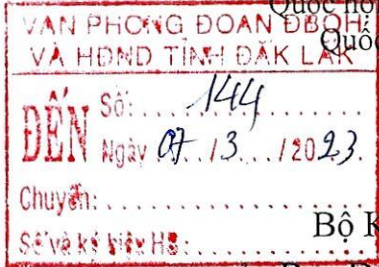 Quốc hội
VĂN PHÒNG ĐOÀN ĐBQH
Quốc
VÀ HĐND TỈNH ĐẮK LẮK
ĐẾN
Số: 144
Ngày 07/3/2023
Chuyển:
Số và ký hiệu HS:
Bộ K